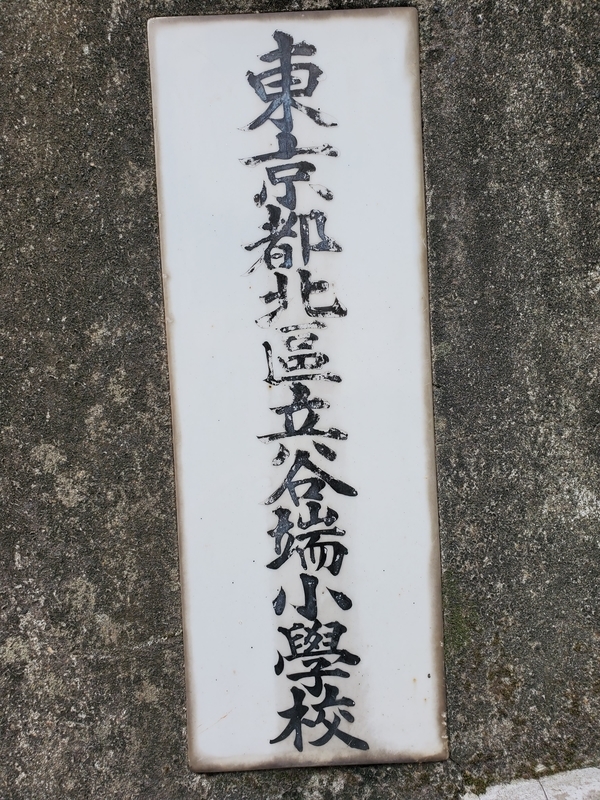 東京都北區立谷端小學校